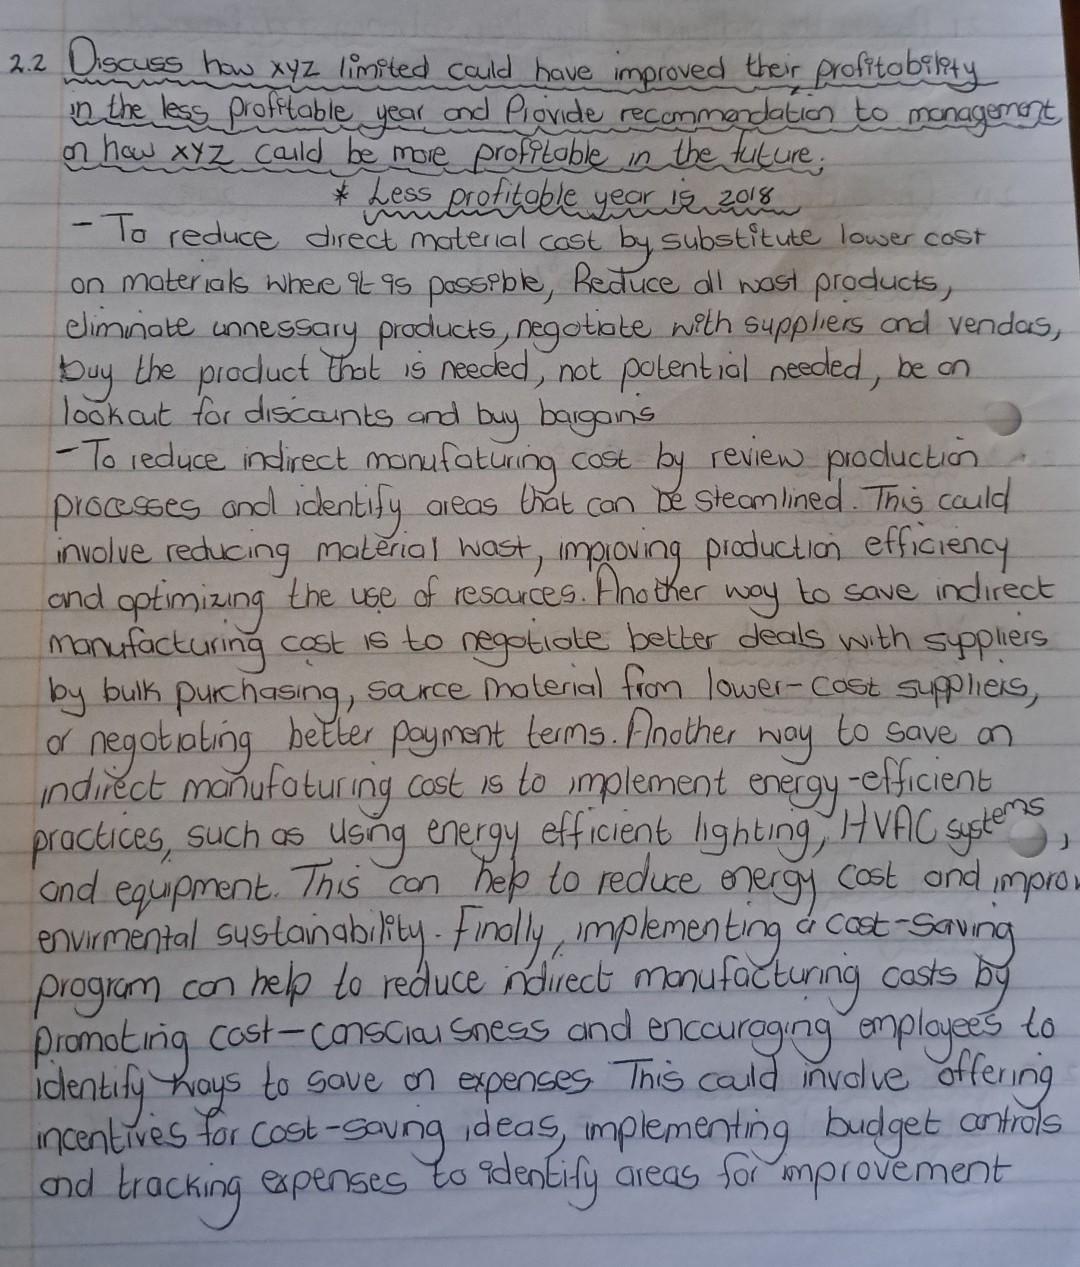 2.2 Discuss how xyz limited could have improved their profitability
in the less profitable year and Provide recommendation to management
on how XYZ could be more profitable in the future.
* Less profitable year is 2018
- To reduce direct material cost by substitute lower cost
on materials where it is possible, Reduce all wast products,
eliminate unnessary products, negotiate with suppliers and vendas,
buy the product that is needed, not potential needed, be on
lookout for discounts and buy bargains
- To reduce indirect manufaturing cost by review production
processes and identify areas that can be steamlined. This could
involve reducing material wast, improving production efficiency
and optimizing the use of resources. Another way to save indirect
manufacturing cost is to negotiate better deals with suppliers
by bulk purchasing, sarce material from lower-cost suppliers,
or negotiating better payment terms. Another way to save on
indirect manufaturing cost is to implement energy-efficient
practices, such as using energy efficient lighting, HVAC systems,
and equipment. This can help to reduce energy cost and improv
envirmental sustainability. Finally, implementing a cost-saving
program can help to reduce indirect manufacturing costs by
promoting cost-consciousness and encouraging employees to
identify ways to save on expenses This could involve offering
incentives for cost-saving ideas, implementing budget controls
and tracking expenses to identify areas for improvement